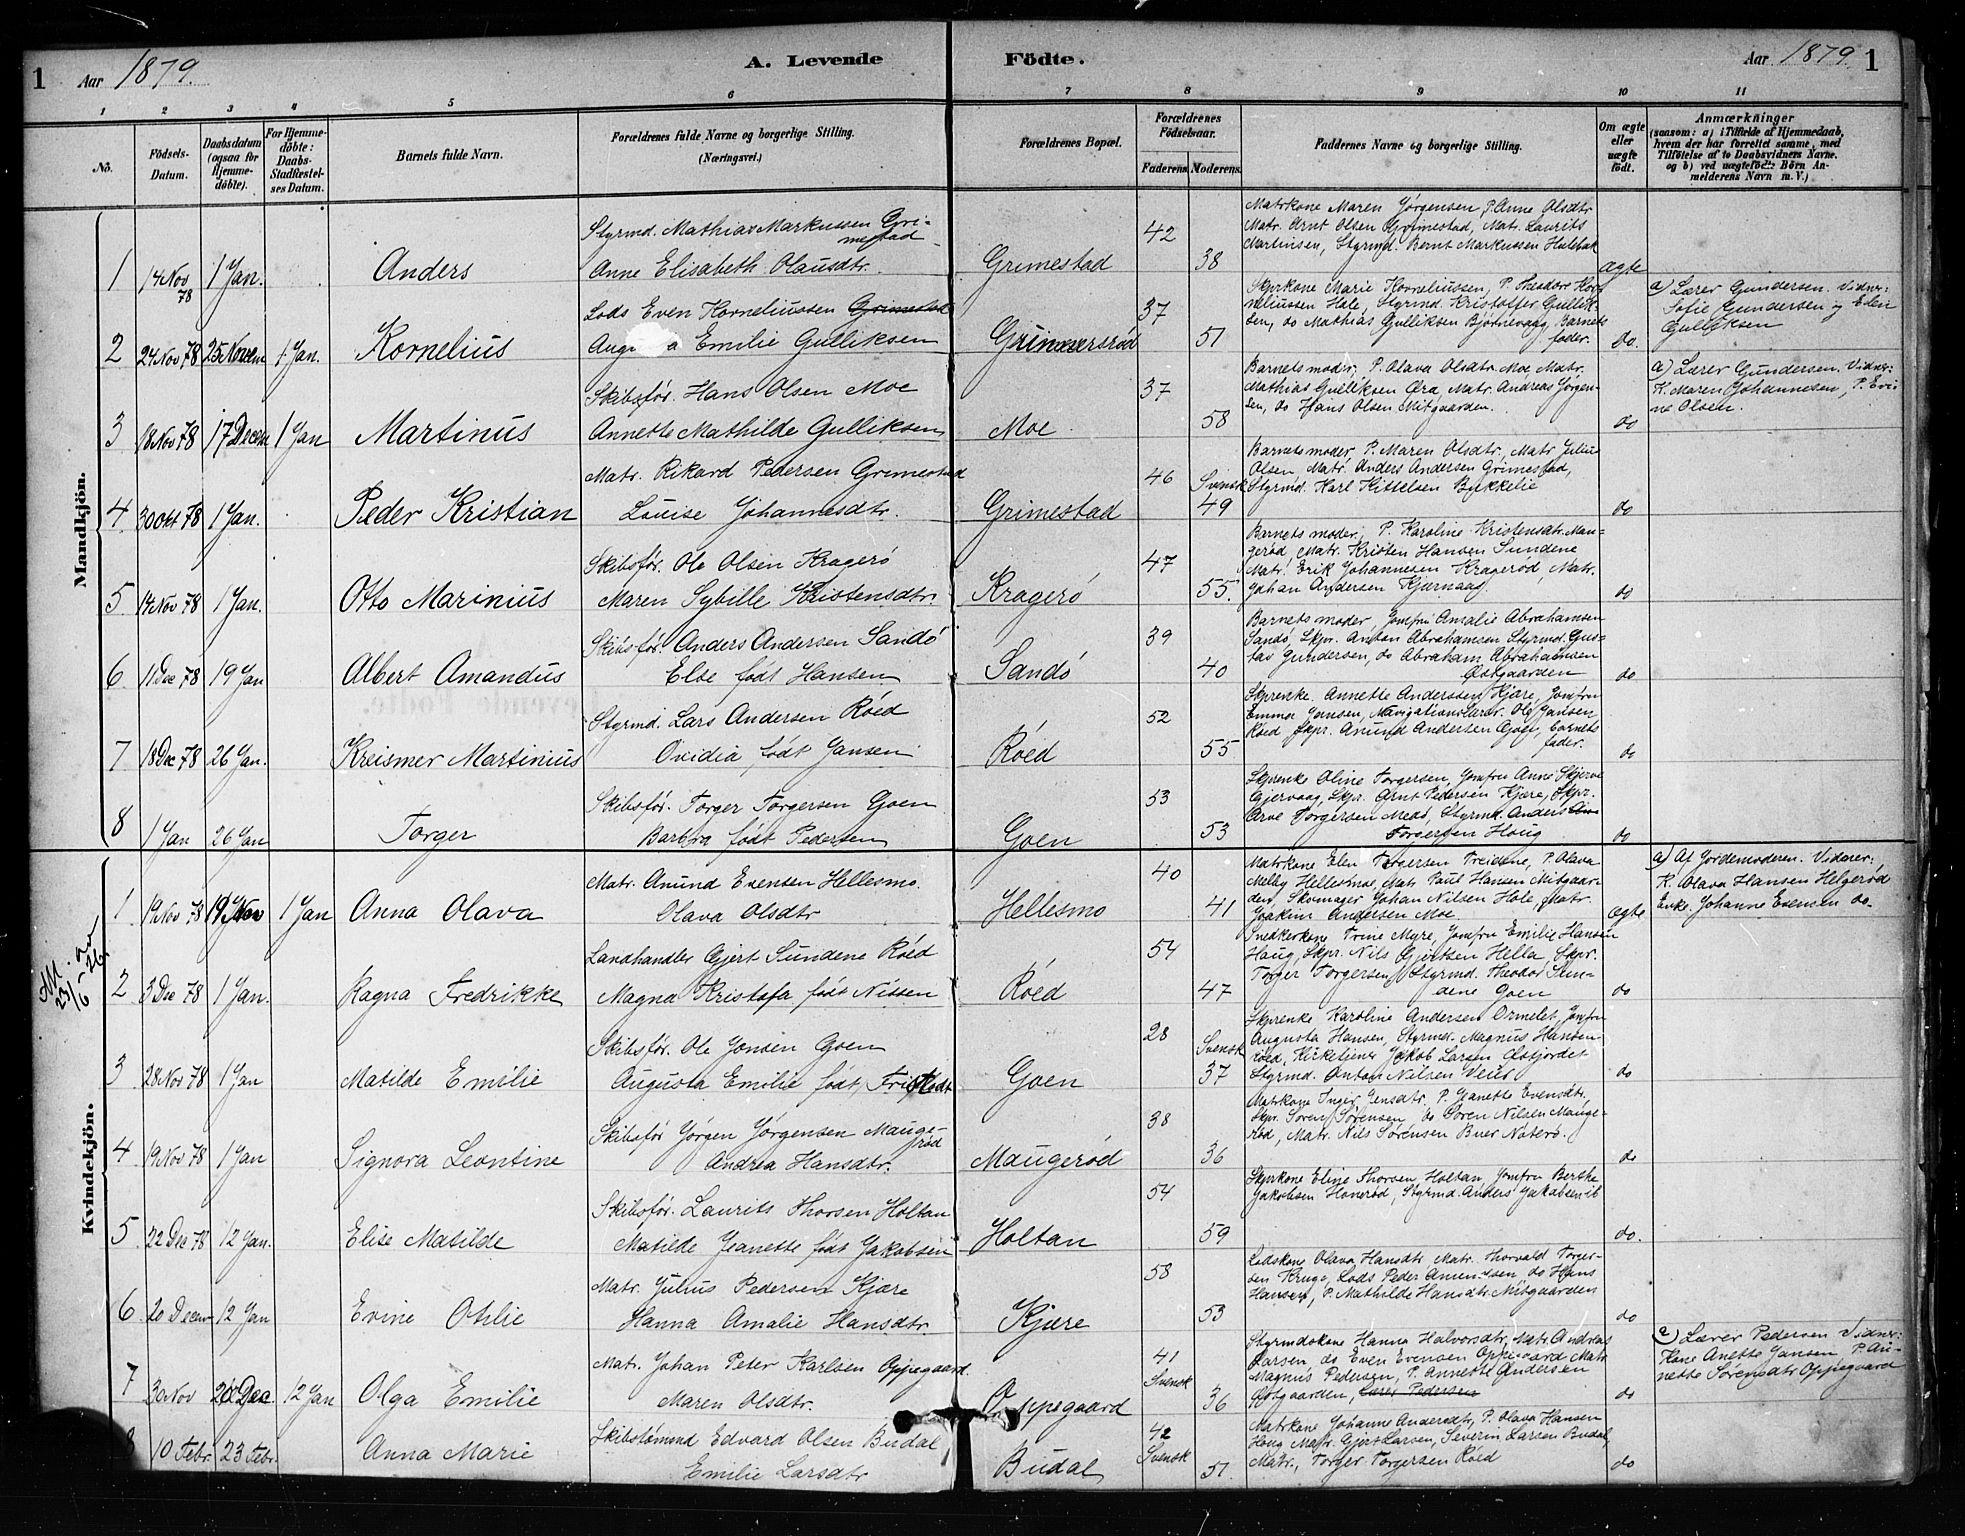 1 Aar 1879. A. Levende Födte. Aar 1879. 1
1 2 3 4 5 6 7 8 9 10 11
No.
Födsels-
Datum.
Daabsdatum
(ogsaa for
Hjemme-
döbte).
For Hjemme-
döbte:
Daabs-
Stadfæstel-
ses Datum.
Barnets fulde Navn.
Forældrenes fulde Navne og borgerlige Stilling.
(Næringsvei.)
Forældrenes Bopæl.
Forældrenes
Födselsaar.
Faderens. Moderens.
Faddernes Navne og borgerlige Stilling.
Om ægte
eller
uægte
födt.
Anmærkninger
(saasom: a) i Tilfælde af Hjemmedaab,
hvem der har forrettet samme, med
Tilföielse af to Daabsvidners Navne,
og b) ved uægtefödte Börn An-
melderens Navn m. V.)
Mandkjön.
1 14 Nov 78 1 Jan. Anders
Styrmd. Mathias Markussen Gri-
mestad
Anne Elisabeth Olausdtr.
Grimestad 42 38
Matrkone Maren Jörgensen, P. Anne Olsdtr
Matr. Arnt Olsen Grimestad, Mat. Laurits
Martinsen, Styrmd. Bernt Markussen Hulbak
ægte
2 24 Nov 78 25 Novem 1 Jan. Kornelius
Lods Even Korneliussen Grimestad
Emilie Gulliksen
Grimmersrød 37 51
Skprkone Marie Korneliussen, P. Theodor Kor-
neliussen Hole, Styrmd. Kristoffer Gullik-
sen, do Mathias Gulliksen Bjørnevaag, Barnets
fader.
do.
a) Lærer Gundersen. Vidner:
Sofie Gundersen og Elen
Gulliksen
3 18 Nov 78 17 Decem 1 Jan Martinus
Skibsför. Hans Olsen Moe
Annette Mathilde Gulliksen
Moe 37 58
Barnets moder, P. Olava Olsdtr. Moe, Matr.
Mathias Gulliksen Øra, Matr. Andreas Jørgen-
sen, do Hans Olsen Mitgaarden.
do
a) Lærer Gundersen. Vidner:
K. Maren Johannesen, P. Evi-
ne Olsen.
4 30 Okt 78 1 Jan. Peder Kristian
Matr. Rikard Pedersen Grimestad
Louise Johannesdtr.
Grimestad 46 Svensk 49
Barnets moder, P. Maren Olsdtr., Matr Julius
Olsen, Matr. Anders Andersen Grimestad,
Styrmd. Karl Kittelsen Bukkelie
do
5 14 Nov 78 1 Jan. Otto Marinius
Skibsför. Ole Olsen Krageró
Maren Sybille Kristensdtr.
Krageró 47 55.
Barnets moder, P. Karoline Kristensdtr. Mau-
gerød, Matr. Kristen Hansen Sundene
Matr. Erik Johannesen Kragerød, Matr.
Johan Andersen Kjærnaas.
do
6 11 Dec 78 19 Jan Albert Amandus
Skibsför. Anders Andersen Sandó
Else født Hansen
Sandó 39 40
Barnets moder, Jomfru Amalie Abrahamsen
Sandó Skpr. Anton Abrahamsen Styrmd. Gus-
tav Gundersen, do Abraham Abrahamsen
Østgaarden
do
7 18 Dec 78 26 Jan. Kreismer Martinius
Styrmd. Lars Andersen Róed
Ovidia født Jansen
Róed 52 55
Skprenke Annette Anderssen Kjære, Jomfru
Emma Jansen, Navigationslærer Ole Jansen
Róed Skpr. Anund Andersen Goen, barnets
fader.
do
8 1 Jan 26 Jan Torger
Skibsför. Torger Torgersen Goen
Barbra født Pedersen
Goen 53 53
Skprenke Oline Torgersen, Jomfru Anne Skjerve
Gjervaag, Skpr. Arnt Pedersen Kjære, Skpr.
Arve Torgersen Medó, Styrmd. Anders
Torgersen Houg
do
Kvindekjön.
23/6 26.
1 19 Nov 78 19 Nov 1 Jan Anna Olava
Matr. Anund Evensen Hellesmo.
Olava Olsdtr
Hellesmo 40 41
Matrkone Elen Torgersen Treidene, P. Olava
Melby Hellesmo, Matr. Paul Hansen Mitgaar-
den, Skomager Johan Nilsen Hole, Matr.
Joakim Andersen Moe.
ægte
a) Af Jordemoderen. Vidner:
K. Olava Hansen Helgerød
Enke. Johanne Evensen do.
2 3 Dec 78 1 Jan. Ragna Fredrikke
Landhandler Gjert Sundene Róed
Magna Kristofa født Nissen
Róed 54 47
Snedkerkone Trine Myre, Jomfru Emilie Hansen
Haug, Skpr. Nils Gjertsen Hella, Skpr.
Torger Torgersen, Styrmd. Theodor Sun-
dene Goen
do
3 28 Nov 78 1 Jan Matilde Emilie
Skibsför. Ole Jonsen Goen
Augusta Emilie født
Goen 28 Svensk 37
Skprenke Karoline Andersen Ormelet, Jomfru
Augusta Hansen, Styrmd. Magnus Hansen
Róed, Kirketjener Jakob Larsen Østjordet
Styrmd. Anton Nilsen Veier
do
4 19 Nov 78 1 Jan Signora Leontine
Skibsför Jörgen Jörgensen Mauge-
rød
Andrea Hansdtr.
Maugerød 38 36
Matrkone Inger Jensdtr. P. Jeanette Evensdtr.
Skpr. Soren Sörensen, do Sören Nilsen Mauge-
rød, Matr. Nils Sörensen Buer Nøterø.
do
5 22 Dec 78 12 Jan. Elise Matilde
Skibsför. Laurits Thorsen Holtan
Matilde Jeanette født Jakobsen
Holtan 54 59
Skprkone Eline Thorsen Holtan, Jomfru Berthe
Jakobsen Honerød, Styrmd. Anders Jakobsen ib
do.
6 20 Decem 12 Jan Evine Otilie
Matr. Julius Pedersen Kjære
Hanna Amalie Hansdtr.
Kjære 58 53
Lodskone Olava Hansdtr, Matr. Thorvald Torger-
sen Kruge, Lods Peder Amundsen, do Hans
Hansen, P. Mathilde Hansdtr. Mitgaarden
do
7 30 Nov 20 Dec. 12 Jan Olga Emilie
Matr. Johan Peter Karlsen Oppegaard.
Maren Olsdtr.
Oppegaard 41 Svensk 36
Styrmdskone Hanna Halvorsdtr, Matr. Andreas
Larsen, do Even Evensen Oppegaard Matr
Magnus Pedersen, P. Annette Andersen
Østgaarden, Lærer Pedersen
do
a) Lærer Pedersen Vidner:
Kone Anette Jansen P. An-
nette Sörensdtr Oppegaard
8 10 Febr. 23 Febr. Anna Marie
Skibstømmd Edvard Olsen Budal
Emilie Larsdtr
Budal 42 Svensk 51.
Matrkone Johanne Andersdtr, P. Olava Hansen
Houg Matr. Gjert Larsen, Severin Larsen Budal,
Matr., Torger Torgersen Róed
do